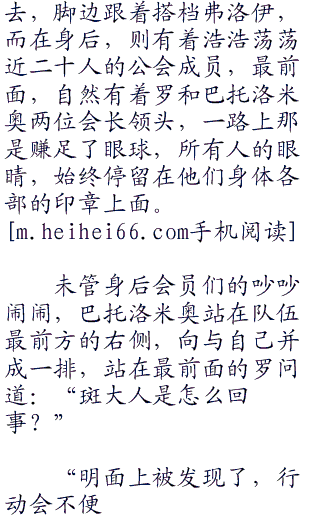 去，脚边跟着搭档弗洛伊，
而在身后，则有着浩浩荡荡
近二十人的公会成员，最前
面，自然有着罗和巴托洛米
奥两位会长领头，一路上那
是赚足了眼球，所有人的眼
睛，始终停留在他们身体各
部的印章上面。
[m.heihei66.com手机阅读]
未管身后会员们的吵吵
闹闹，巴托洛米奥站在队伍
最前方的右侧，向与自己并
成一排，站在最前面的罗问
道：“斑大人是怎么回
事？”
“明面上被发现了，行
动会不便